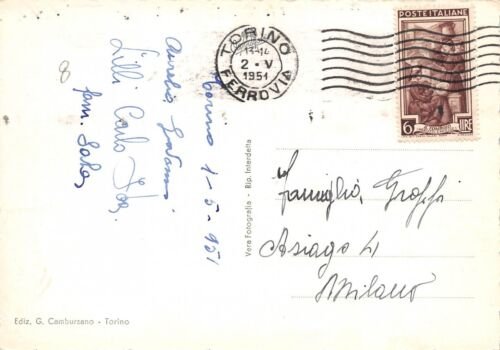 Torino 1-5-951
Aurelio Giovanni
Lilli Carlo
fam.
8
TORINO
13-14
2 - V
1951
FERROVIA
POSTE ITALIANE
6 LIRE
Vera Fotografia - Rip. Interdetta
Famiglia Groppi
Asiago 4
Milano
Ediz. G. Camburzano - Torino